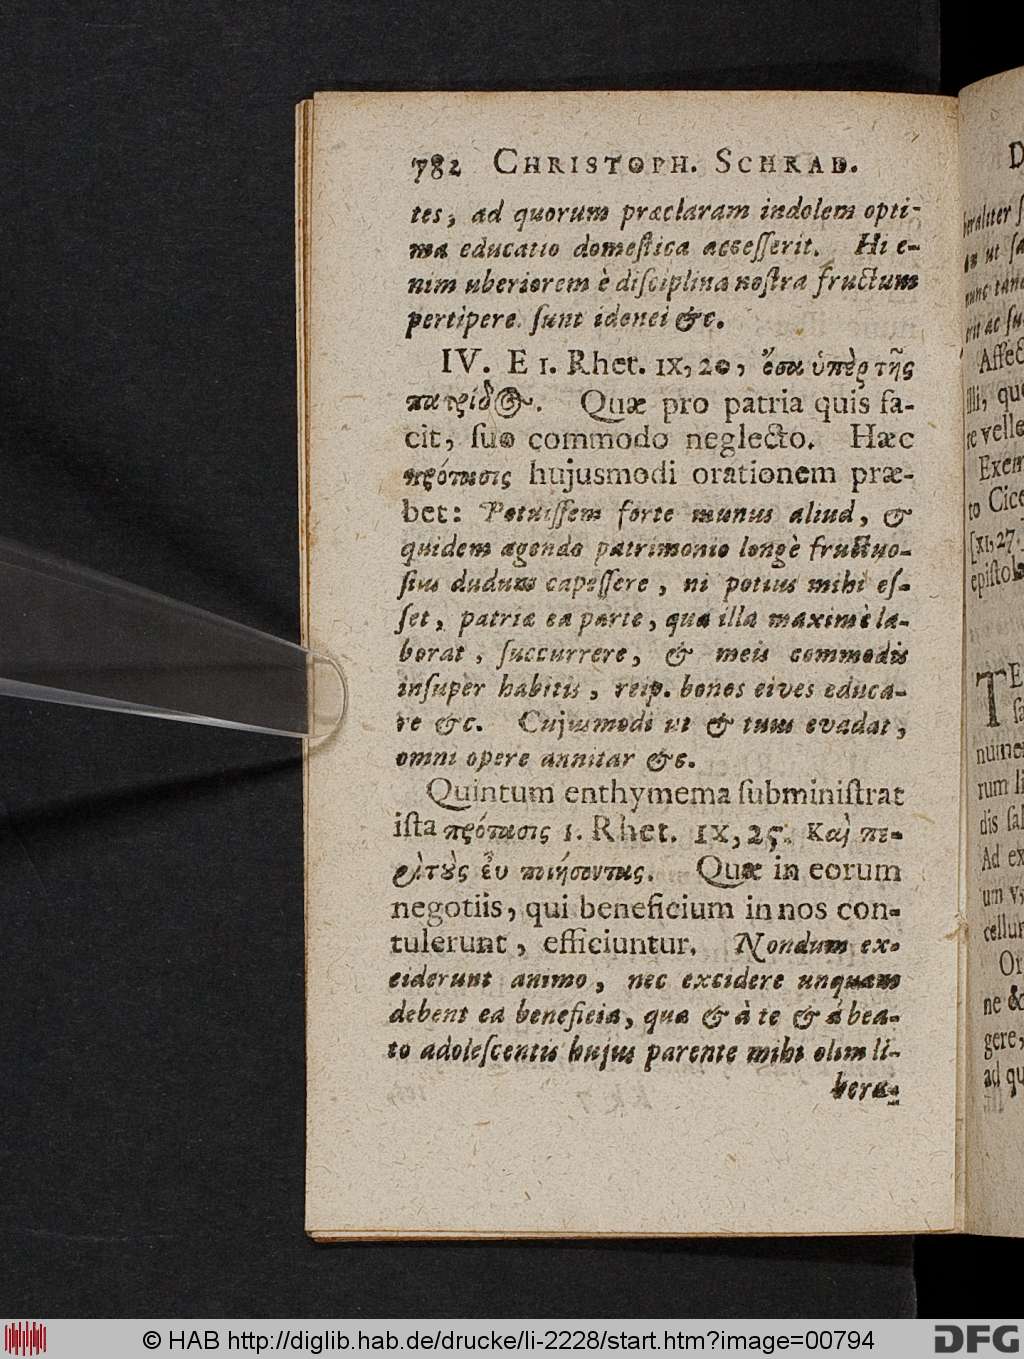 782 CHRISTOPH. SCHRAD.
tes, ad quorum præclaram indolem opti-
ma educatio domeſtica acceſſerit. Hi e-
nim uberiorem è diſciplina noſtra fructum
pertipere ſunt idonei &c.
IV. E 1. Rhet. IX, 20, ὅσα ὑπὲρ τῆς
πατρίδος. Quæ pro patria quis fa-
cit, ſuo commodo neglecto. Hæc
πρότασις hujusmodi orationem præ-
bet: Potuiſſem forte munus aliud, &
quidem agendo patrimonio longè fructuo-
ſius dudum capeſſere, ni potius mihi eſ-
ſet, patriæ ea parte, qua illa maximè la-
borat, ſuccurrere, & meis commodis
inſuper habitis, reip. bonos cives educa-
re &c. Cujusmodi ut & tuus evadat,
omni opere annitar &c.
Quintum enthymema ſubminiſtrat
iſta πρότασις 1. Rhet. IX, 25. Καὶ πε-
ρὶ τοὺς εὖ ποιήσαντας. Quæ in eorum
negotiis, qui beneficium in nos con-
tulerunt, efficiuntur. Nondum ex-
ciderunt animo, nec excidere unquam
debent ea beneficia, qua & à te & á bea-
to adoleſcentis hujus parente mihi olim li-
bera-
D
beraliter
nunc
Affec
illi, quo
re velle
Exem
to Cice
[XI, 27.
epiſtola
TE
numer
rum li
dis ſal
Ad ex
um vs
cellun
Or
ne &
gere,
ad qu
© HAB http://diglib.hab.de/drucke/li-2228/start.htm?image=00794
DFG